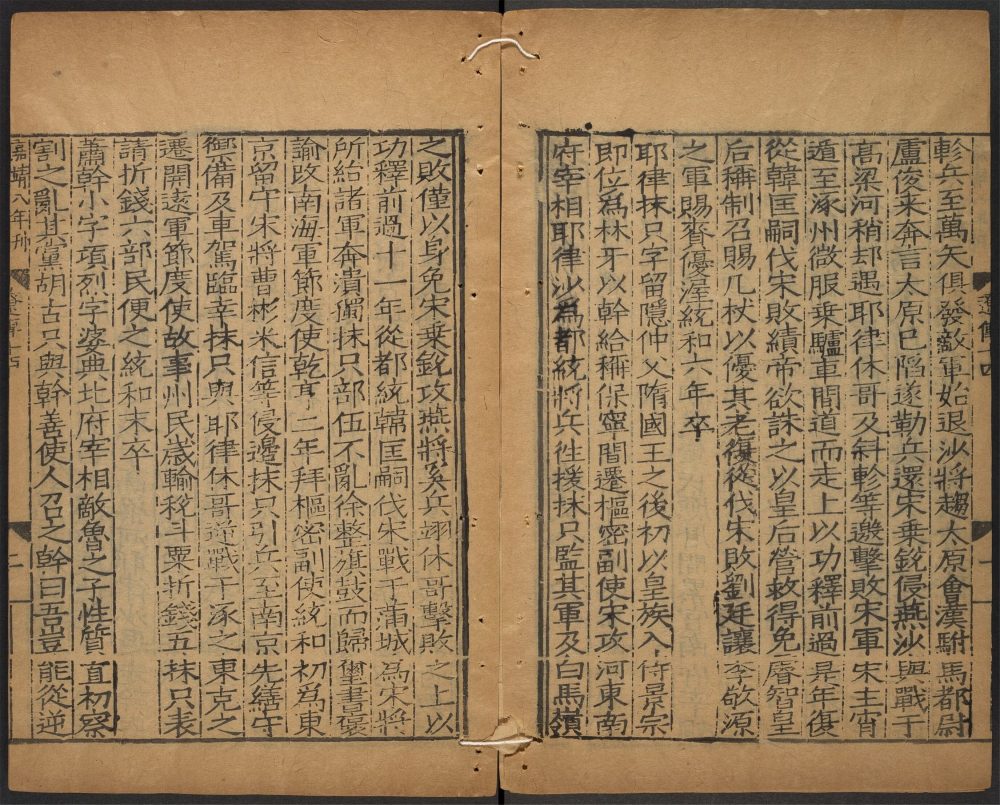 軫兵至萬矢俱發敵軍始退沙將趨太原會漢駙馬都尉
盧俊来奔言太原已陷遂勒兵還宋乗銳侵燕沙與戰于
髙梁河稍却遇耶律休哥及斜軫等邀擊敗宋軍宋主宵
遁至涿州微服乗驢車間道而走上以功釋前過是年復
從韓匡嗣伐宋敗績帝欲誅之以皇后營救得免睿智皇
后稱制召賜几杖以優其老復從伐宋敗劉廷讓李敬源
之軍賜賚優渥統和六年卒
耶律抹只字留隱仲父隋國王之後初以皇族入侍景宗
即位為林牙以幹給稱保寧間遷樞密副使宋攻河東南
府宰相耶律沙為都統將兵徃援抹只監其軍及白馬嶺
遼傳十四
一
之敗僅以身免宋乗銳攻燕將奚兵翊休哥擊敗之上以
功釋前過十一年從都統韓匡嗣伐宋戰于滿城為宋將
所紿諸軍奔潰獨抹只部伍不亂徐整旗鼓而歸璽書褒
諭改南海軍節度使乾亨二年拜樞密副使統和初為東
京留守宋將曹彬米信等侵邊抹只引兵至南京先繕守
禦備及車駕臨幸抹只與耶律休哥逆戰于涿之東克之
遷開遠軍節度使故事州民歳輸稅斗粟折錢五抹只表
請折錢六部民便之統和末卒
蕭幹小字項烈字婆典北府宰相敵魯之子性質直初察
割之亂其黨胡古只與幹善使人召之幹曰吾豈能從逆
嘉靖八年刊
遼傳十四
二